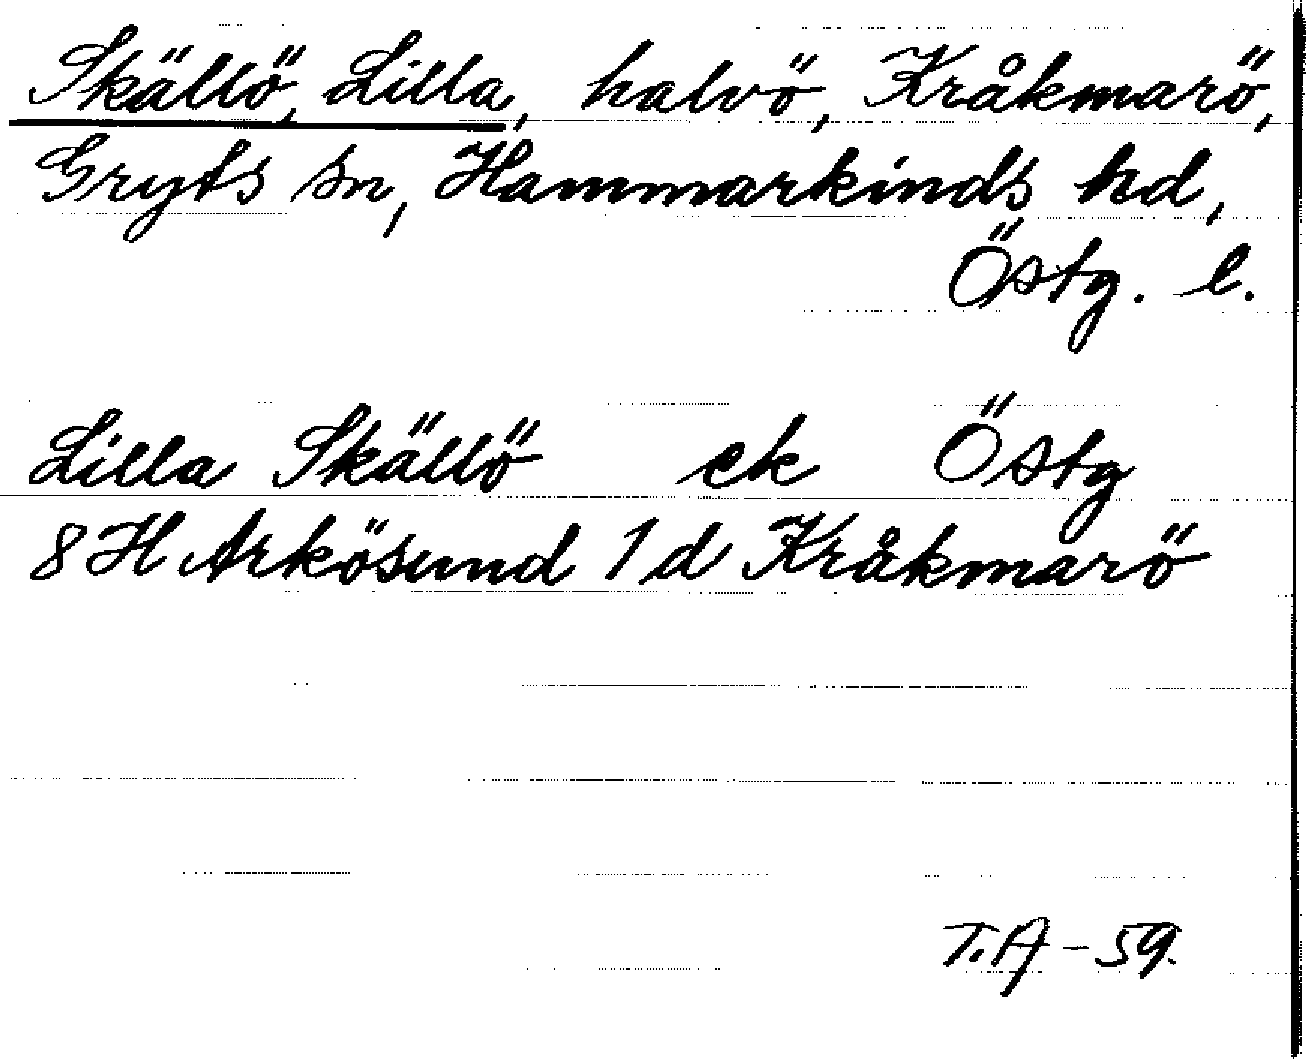 Skällö, Lilla, halvö, Kråkmarö,
Gryts sn, Hammarkinds hd,
Östg. l.
Lilla Skällö ek Östg
8 H Arkösund 1 d Kråkmarö
T.A - 59.